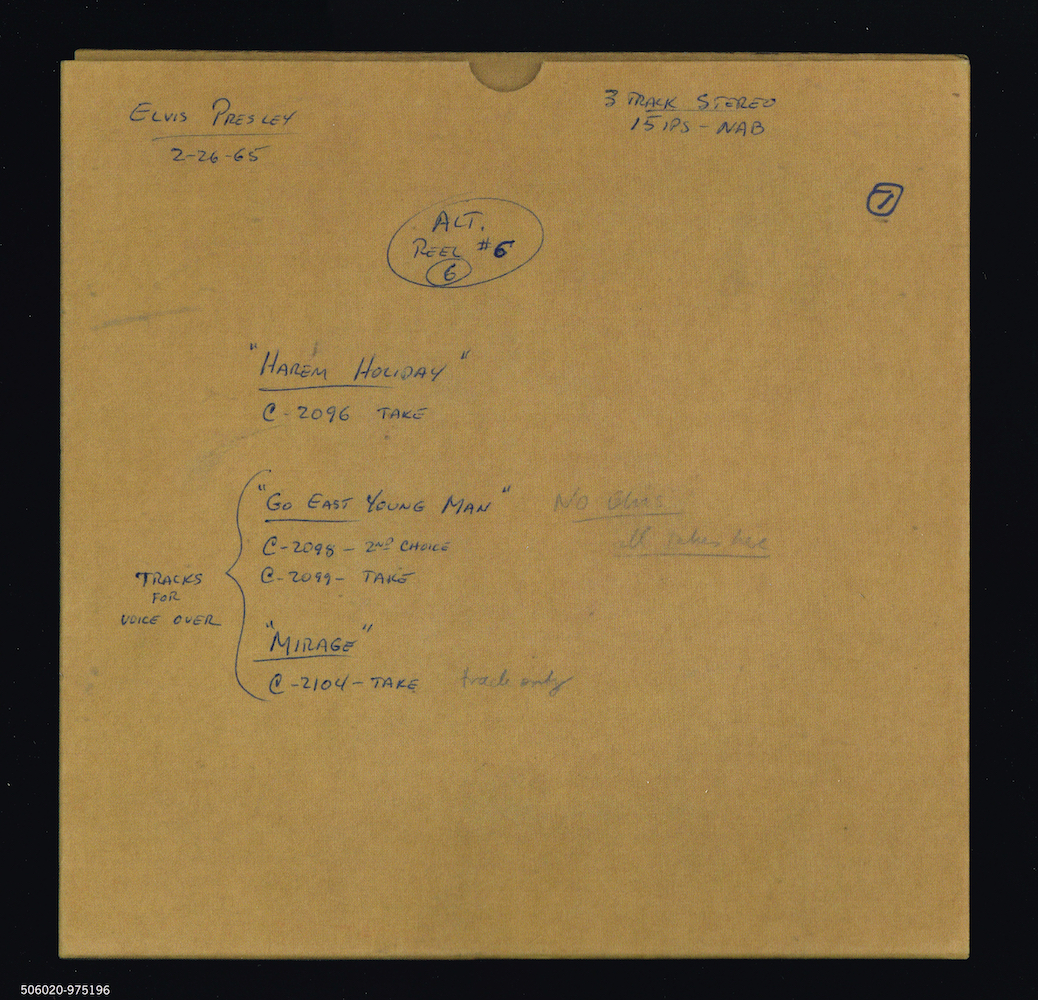 ELVIS PRESLEY
2-26-65
3 TRACK STEREO
15 IPS - NAB
7
ALT.
REEL #6
6
"HAREM HOLIDAY"
C-2096 TAKE
"GO EAST YOUNG MAN" No Elvis
C-2098 - 2ND CHOICE all takes
C-2099 - TAKE
TRACKS
FOR
VOICE OVER
"MIRAGE"
C-2104 - TAKE track only
506020-975196